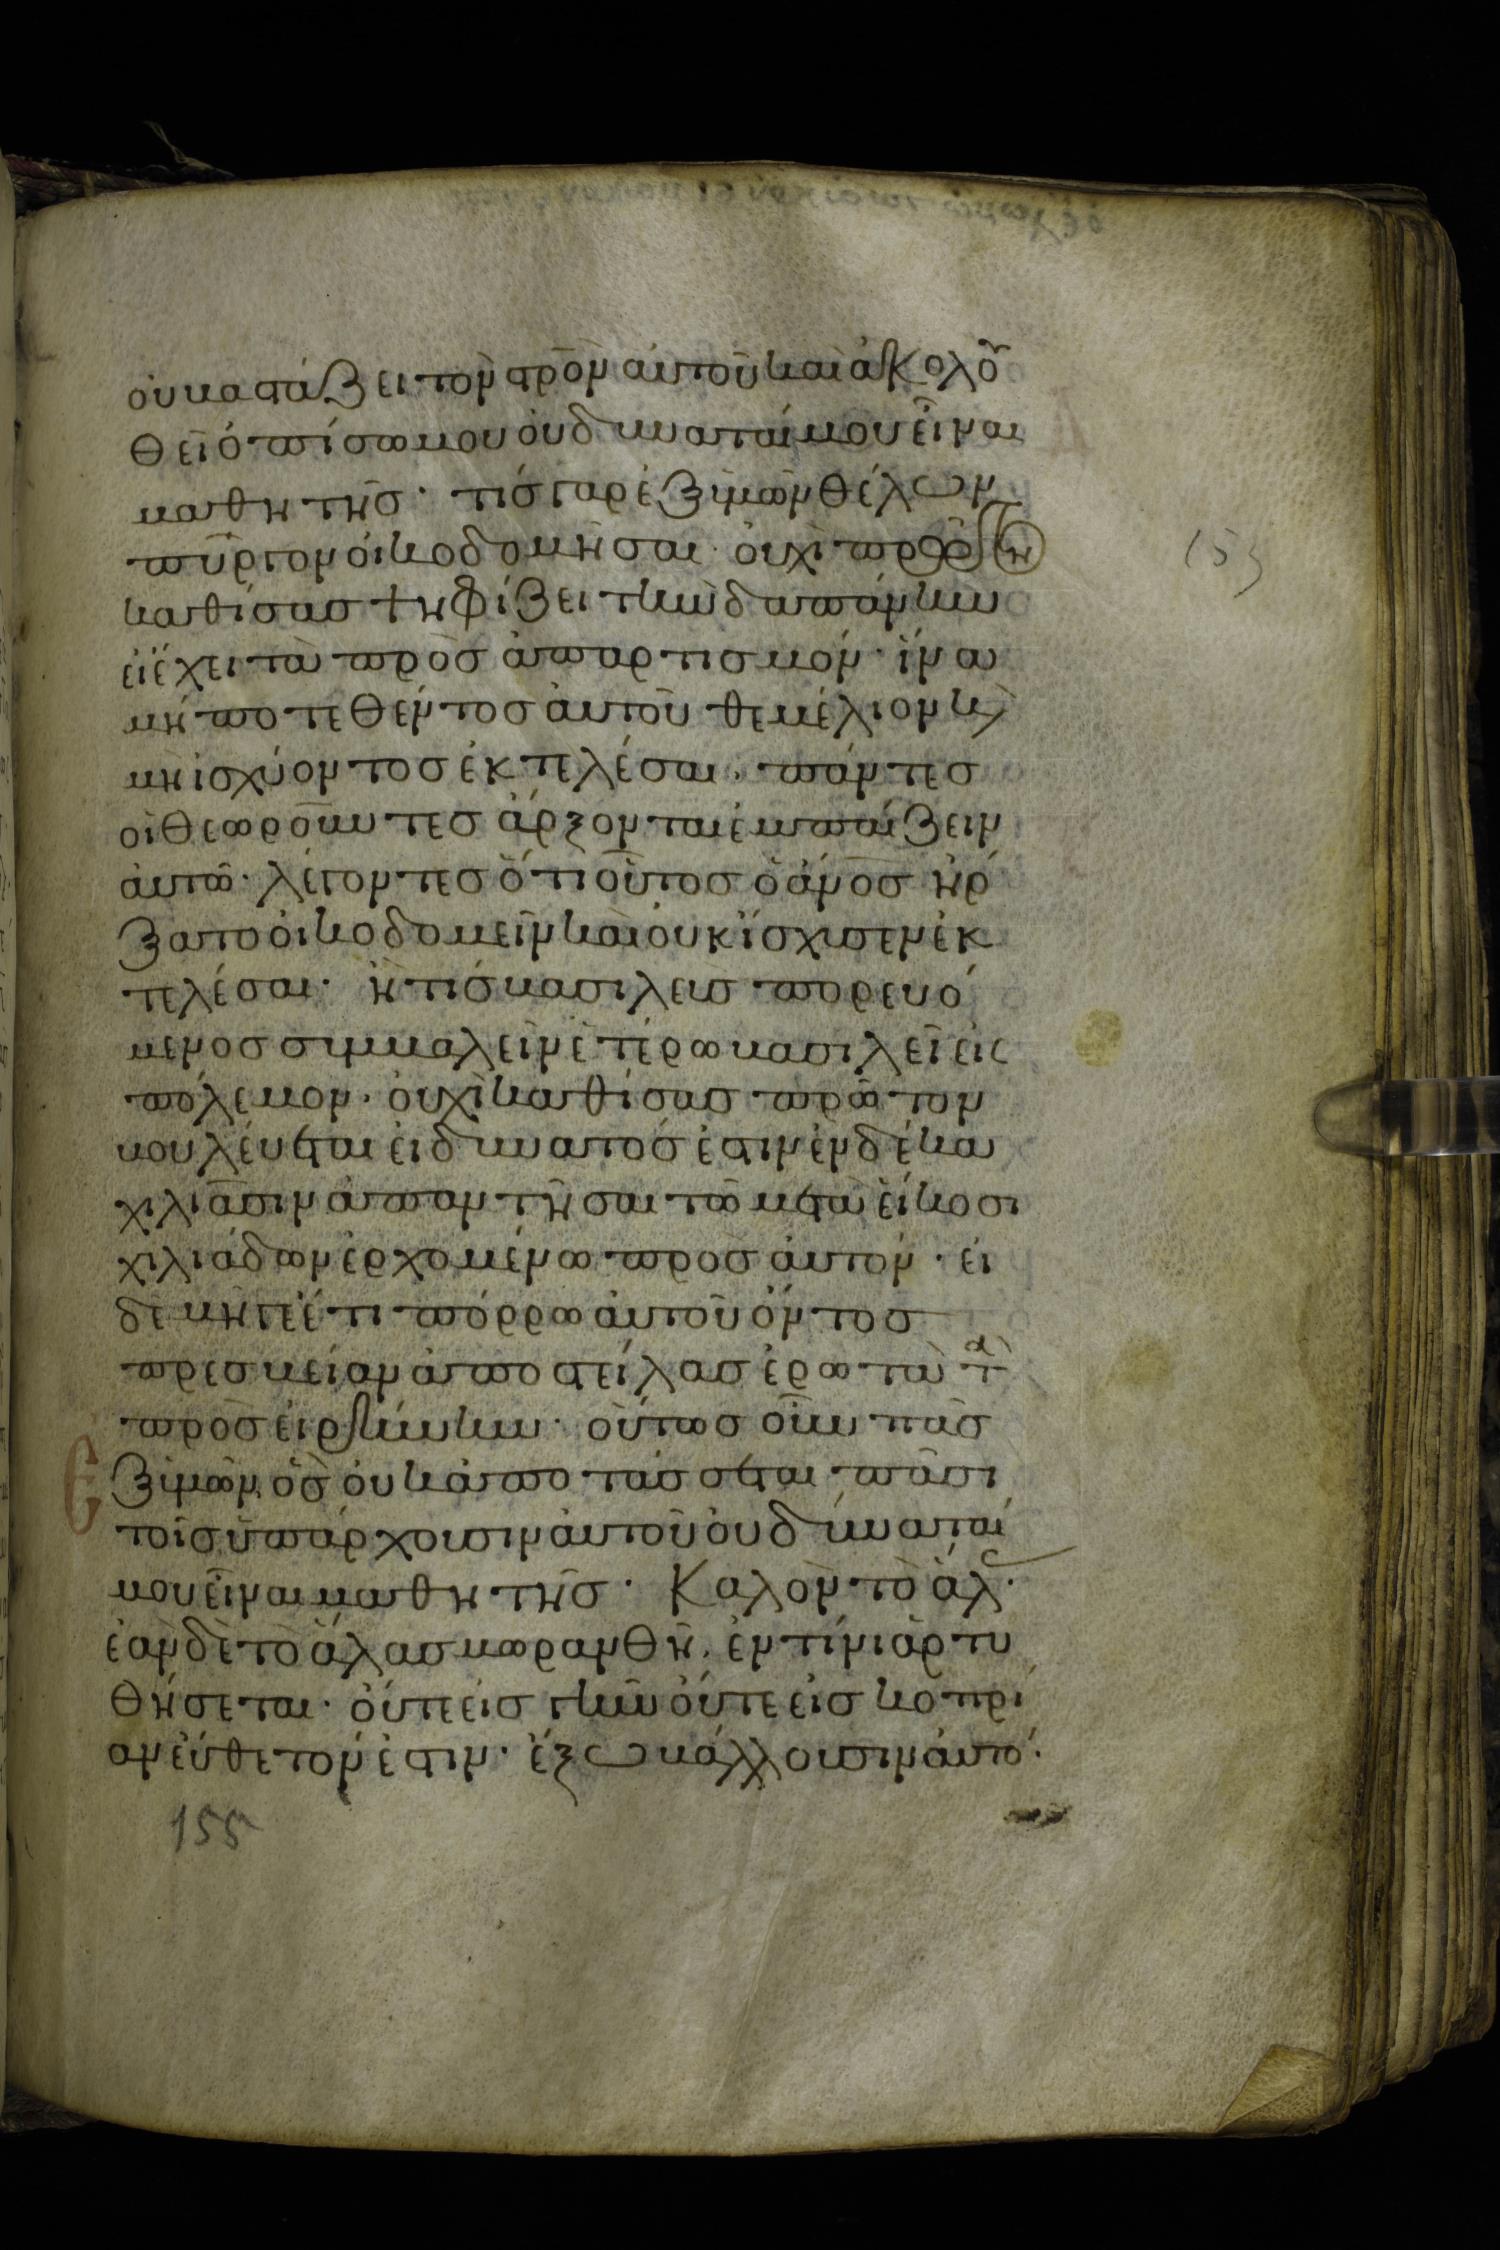 οὐ βαστάζει τὸν στρ̅ον αὐτοῦ καὶ ἀκολου
θεῖ ὀπίσω μου οὐ δύναταί μου εἶναι
μαθητῆς· τίς γὰρ ἐξ ὑμῶν θέλων
πῦργον οἰκοδομῆσαι· οὐχὶ πρῶτον
καθίσας ψηφίζει τὴν δαπάνην
εἰ ἔχει τὰ πρὸς ἀπαρτισμόν· ἵνα
μή ποτε θέντος αὐτοῦ θεμέλιον κ(αὶ)
μὴ ἰσχύοντος ἐκτελέσαι· πάντες
οἱ θεωροῦντες ἄρξονται ἐμπαίζειν
αὐτῶ· λέγοντες ὅτι οὗτος ὁ ἄν̅ος ἤρ
ξατο οἰκοδομεῖν καὶ οὐκ ἴσχυσεν ἐκ
τελέσαι· ἢ τίς βασιλεὺς πορευό
μενος συμβαλεῖν ἑτέρω βασιλεῖ εἰς
πόλεμον· οὐχὶ καθίσας πρῶτον
βουλέυεται εἰ δυνατός ἐστιν ἐν δέκα
χιλιᾶσιν ἀπαντῆσαι τῶ μετὰ εἴκοσι
χιλιάδων ἐρχομένω πρὸς αὐτόν· εἰ
δὲ μῆγε ἔτι πόρρω αὐτοῦ ὄντος
πρεσβείαν ἀποστείλας ἐρωτᾶ τὰ
πρὸς εἰρήνην· οὕτως οὖν πᾶς
ἐξ ὑμῶν, ὃς οὐκ ἀποτάσσεται πᾶσι
τοῖς ὑπάρχουσιν αὐτοῦ οὐ δύναταί
μου εἶναι μαθητῆς· Καλὸν τὸ ἅλας·
ἐὰν δὲ τὸ ἅλας μωρανθῆ, ἐν τίνι ἀρτυ
θήσεται· οὔτε εἰς γῆν οὔτε εἰς κοπρί
αν εὔθετόν ἐστιν· ἔξω βάλλουσιν αὐτό·
153
155